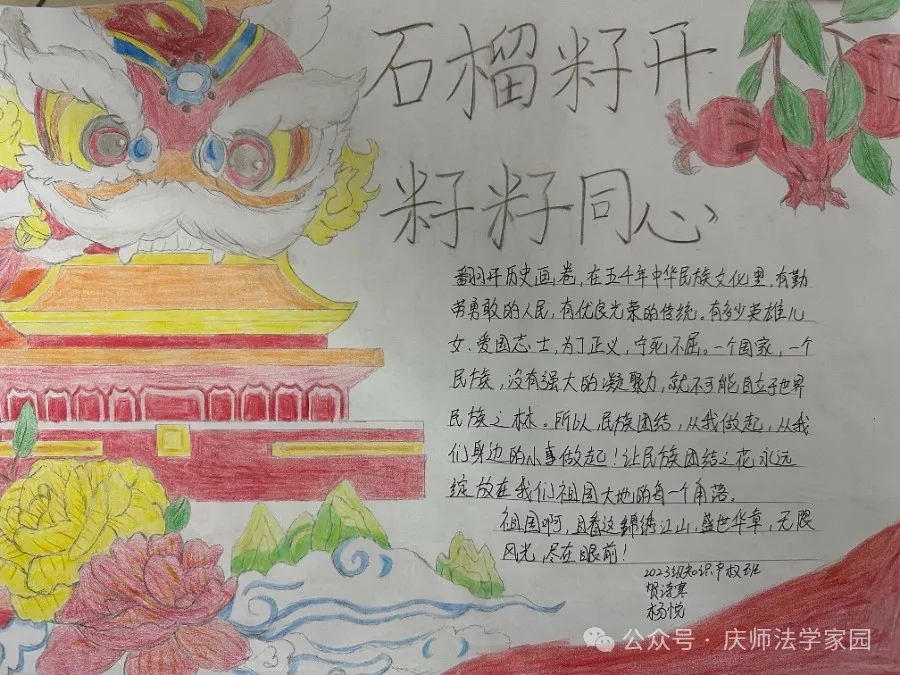 石榴籽开
籽籽同心
翻开历史画卷，在五千年中华民族文化里，有勤
劳勇敢的人民，有优良光荣的传统。有多少英雄儿
女、爱国志士，为了正义，宁死不屈。一个国家，一个
民族，没有强大的凝聚力，就不可能自立于世界
民族之林。所以，民族团结，从我做起，从我
们身边的小事做起！让民族团结之花永远
绽放在我们祖国大地的每一个角落。
祖国啊，且看这锦绣江山，盛世华章，无限
风光，尽在眼前！
2023级知识产权班
杨悦
公众号·庆师法学家园